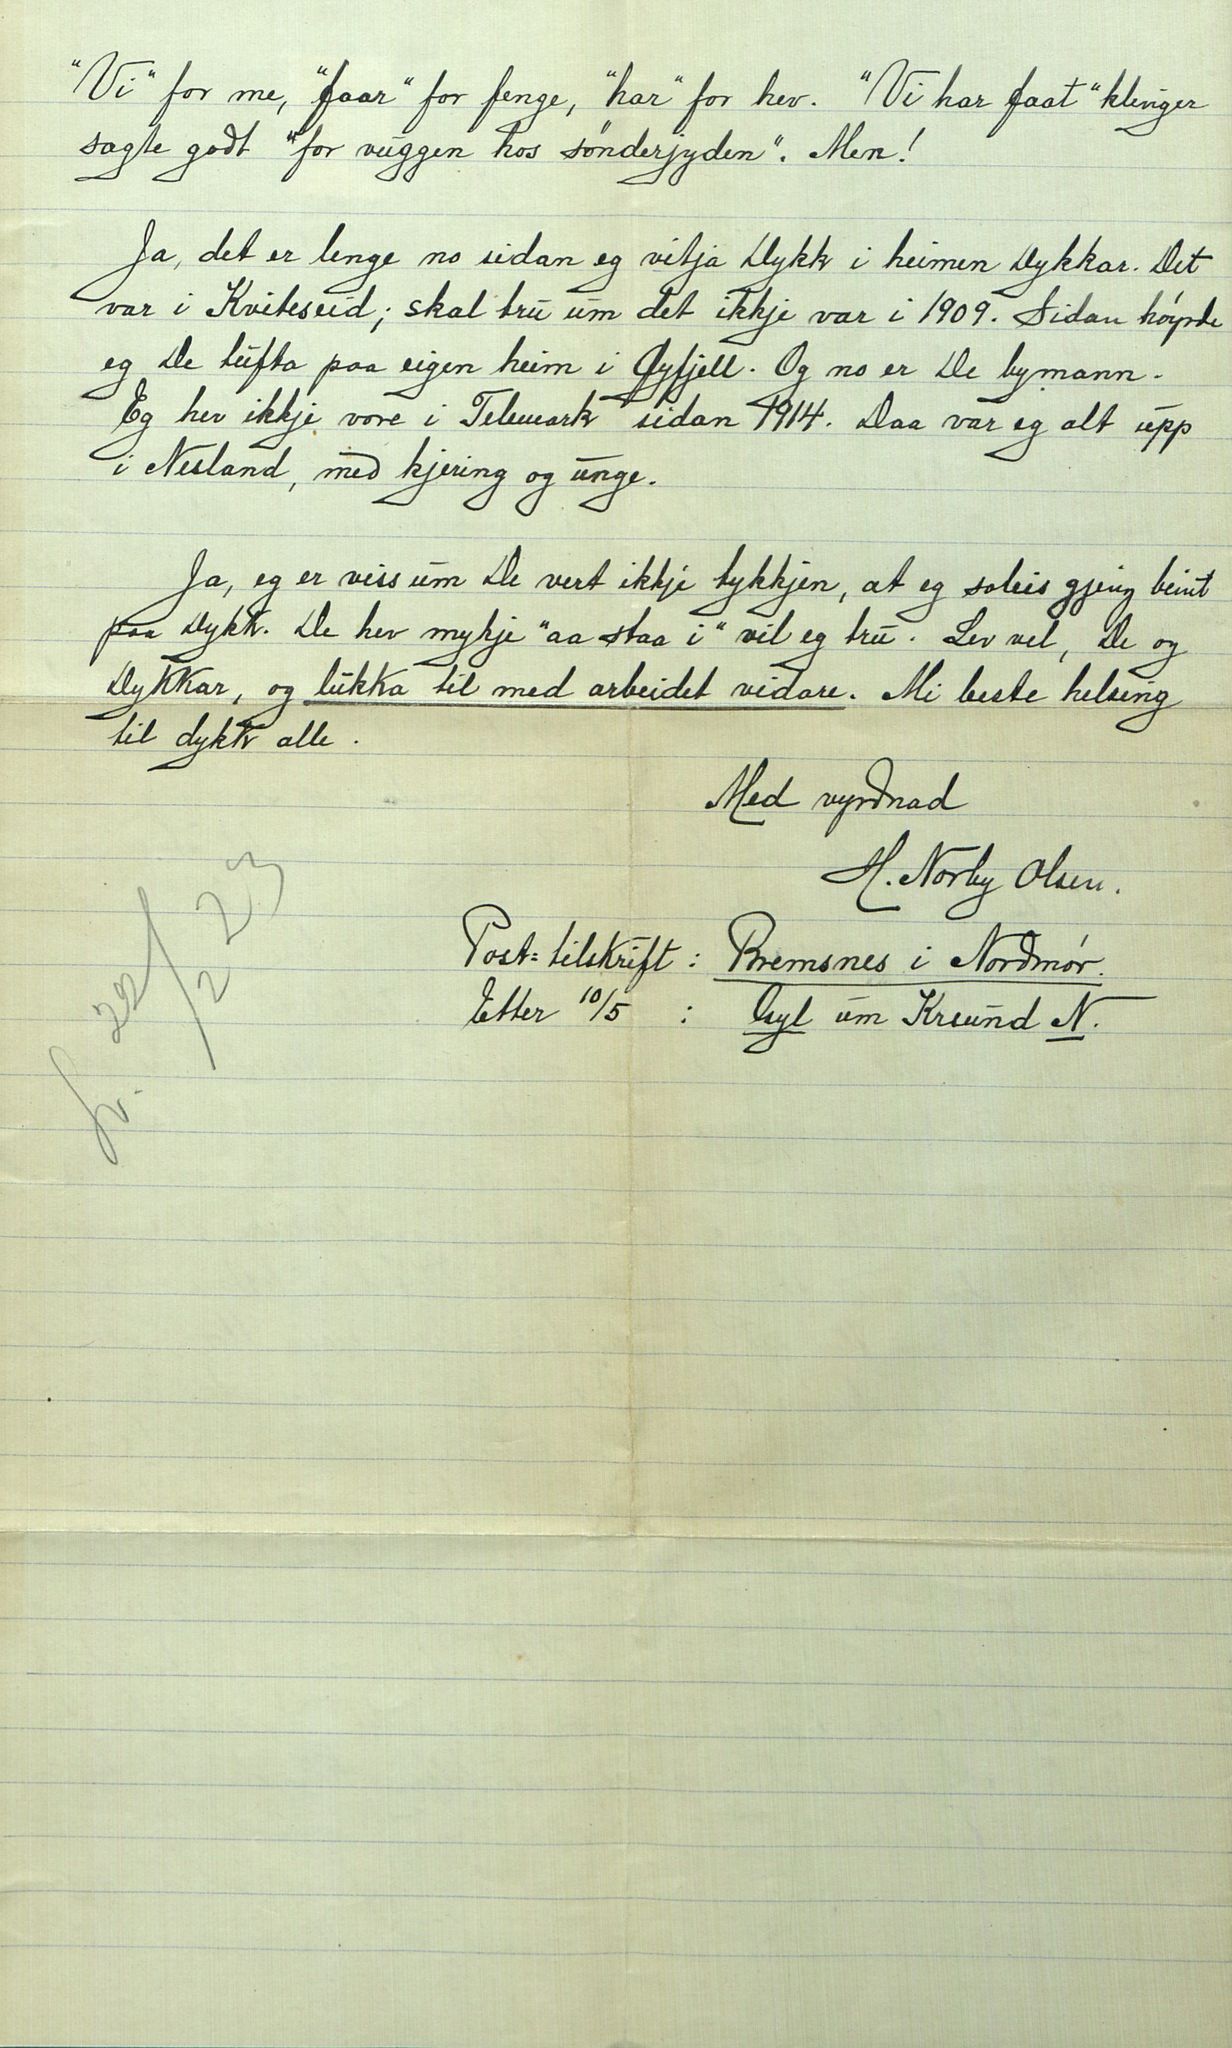 "Vi" for me, "faar" for fenge, "har" for hev. "Vi har faat" klinger
sagte godt "for vuggen hos sønderjyden". Men!
Ja, det er lenge no sidan eg vitja Dykk i heimen Dykkar. Det
var i Kviteseid; skal tru um det ikkje var i 1909. Sidan høyrde
eg De tufta paa eigen heim i Øyfjell. Og no er De bymann.
Eg hev ikkje vore i Telemark sidan 1914. Daa var eg alt upp
i Nesland, med kjering og unge.
Ja, eg er viss um De vert ikkje tykkjen, at eg soleis gjeng beint
paa Dykk. De hev mykje "aa staa i" vil eg tru. Lev vel, De og
Dykkar, og lukka til med arbeidet vidare. Mi beste helsing
til dykk alle.
Med vyrdnad
H. Norby Olsen.
Post-tilskrift: Bremsnes i Nordmør.
Etter 10/5 : Øyl um Krsund N.
sv. 22/2 23